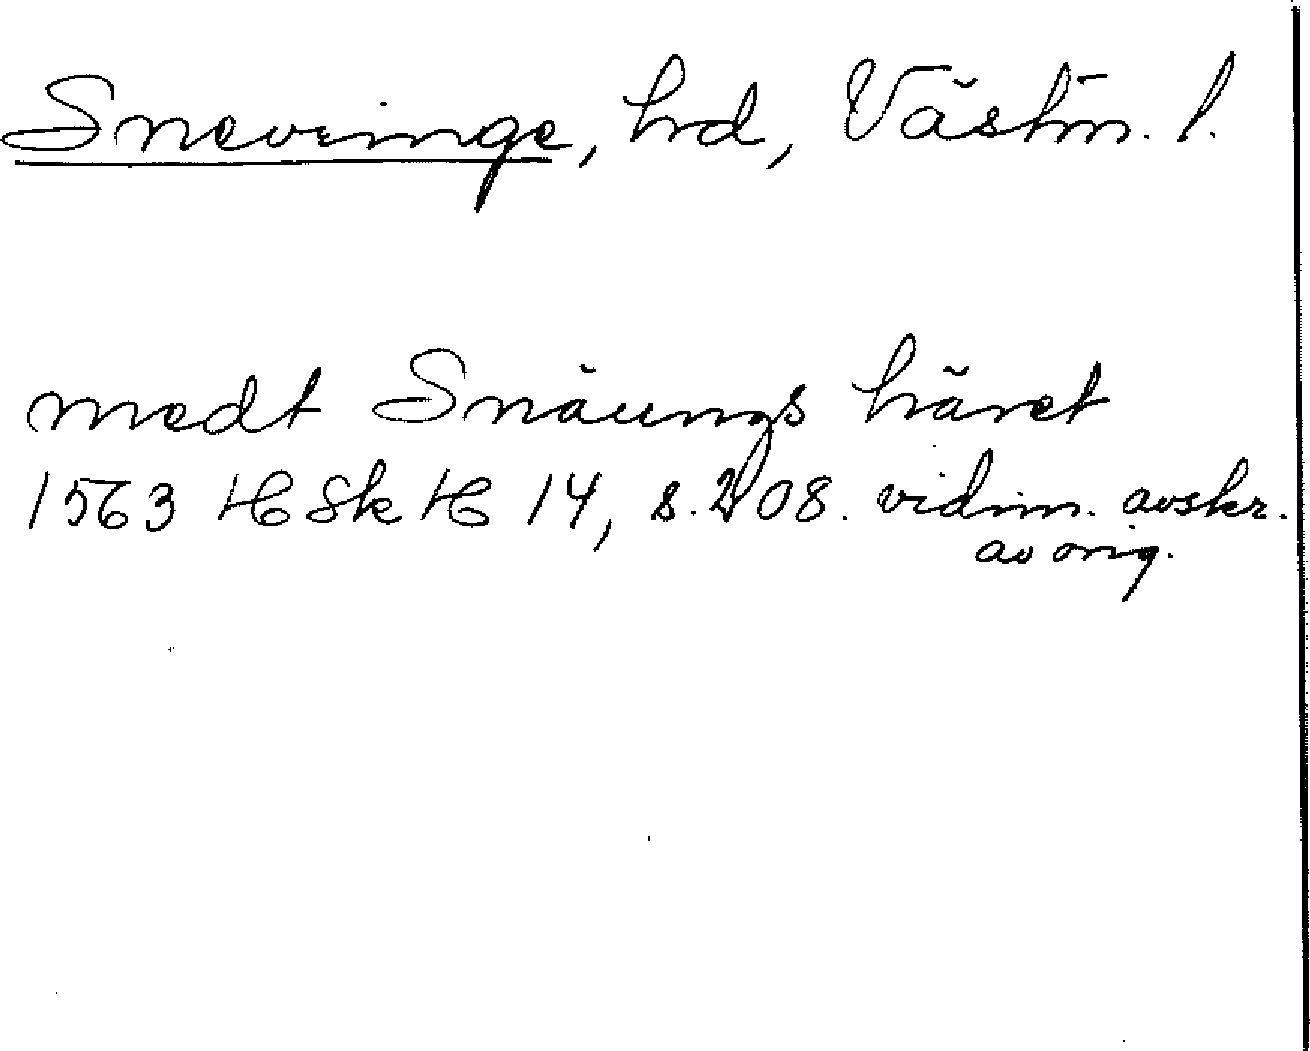 Snevringe, hrd, Västm. l.
medt Snäungs häret
1563 HSkH 14, s. 208. vidim. avskr.
av orig.